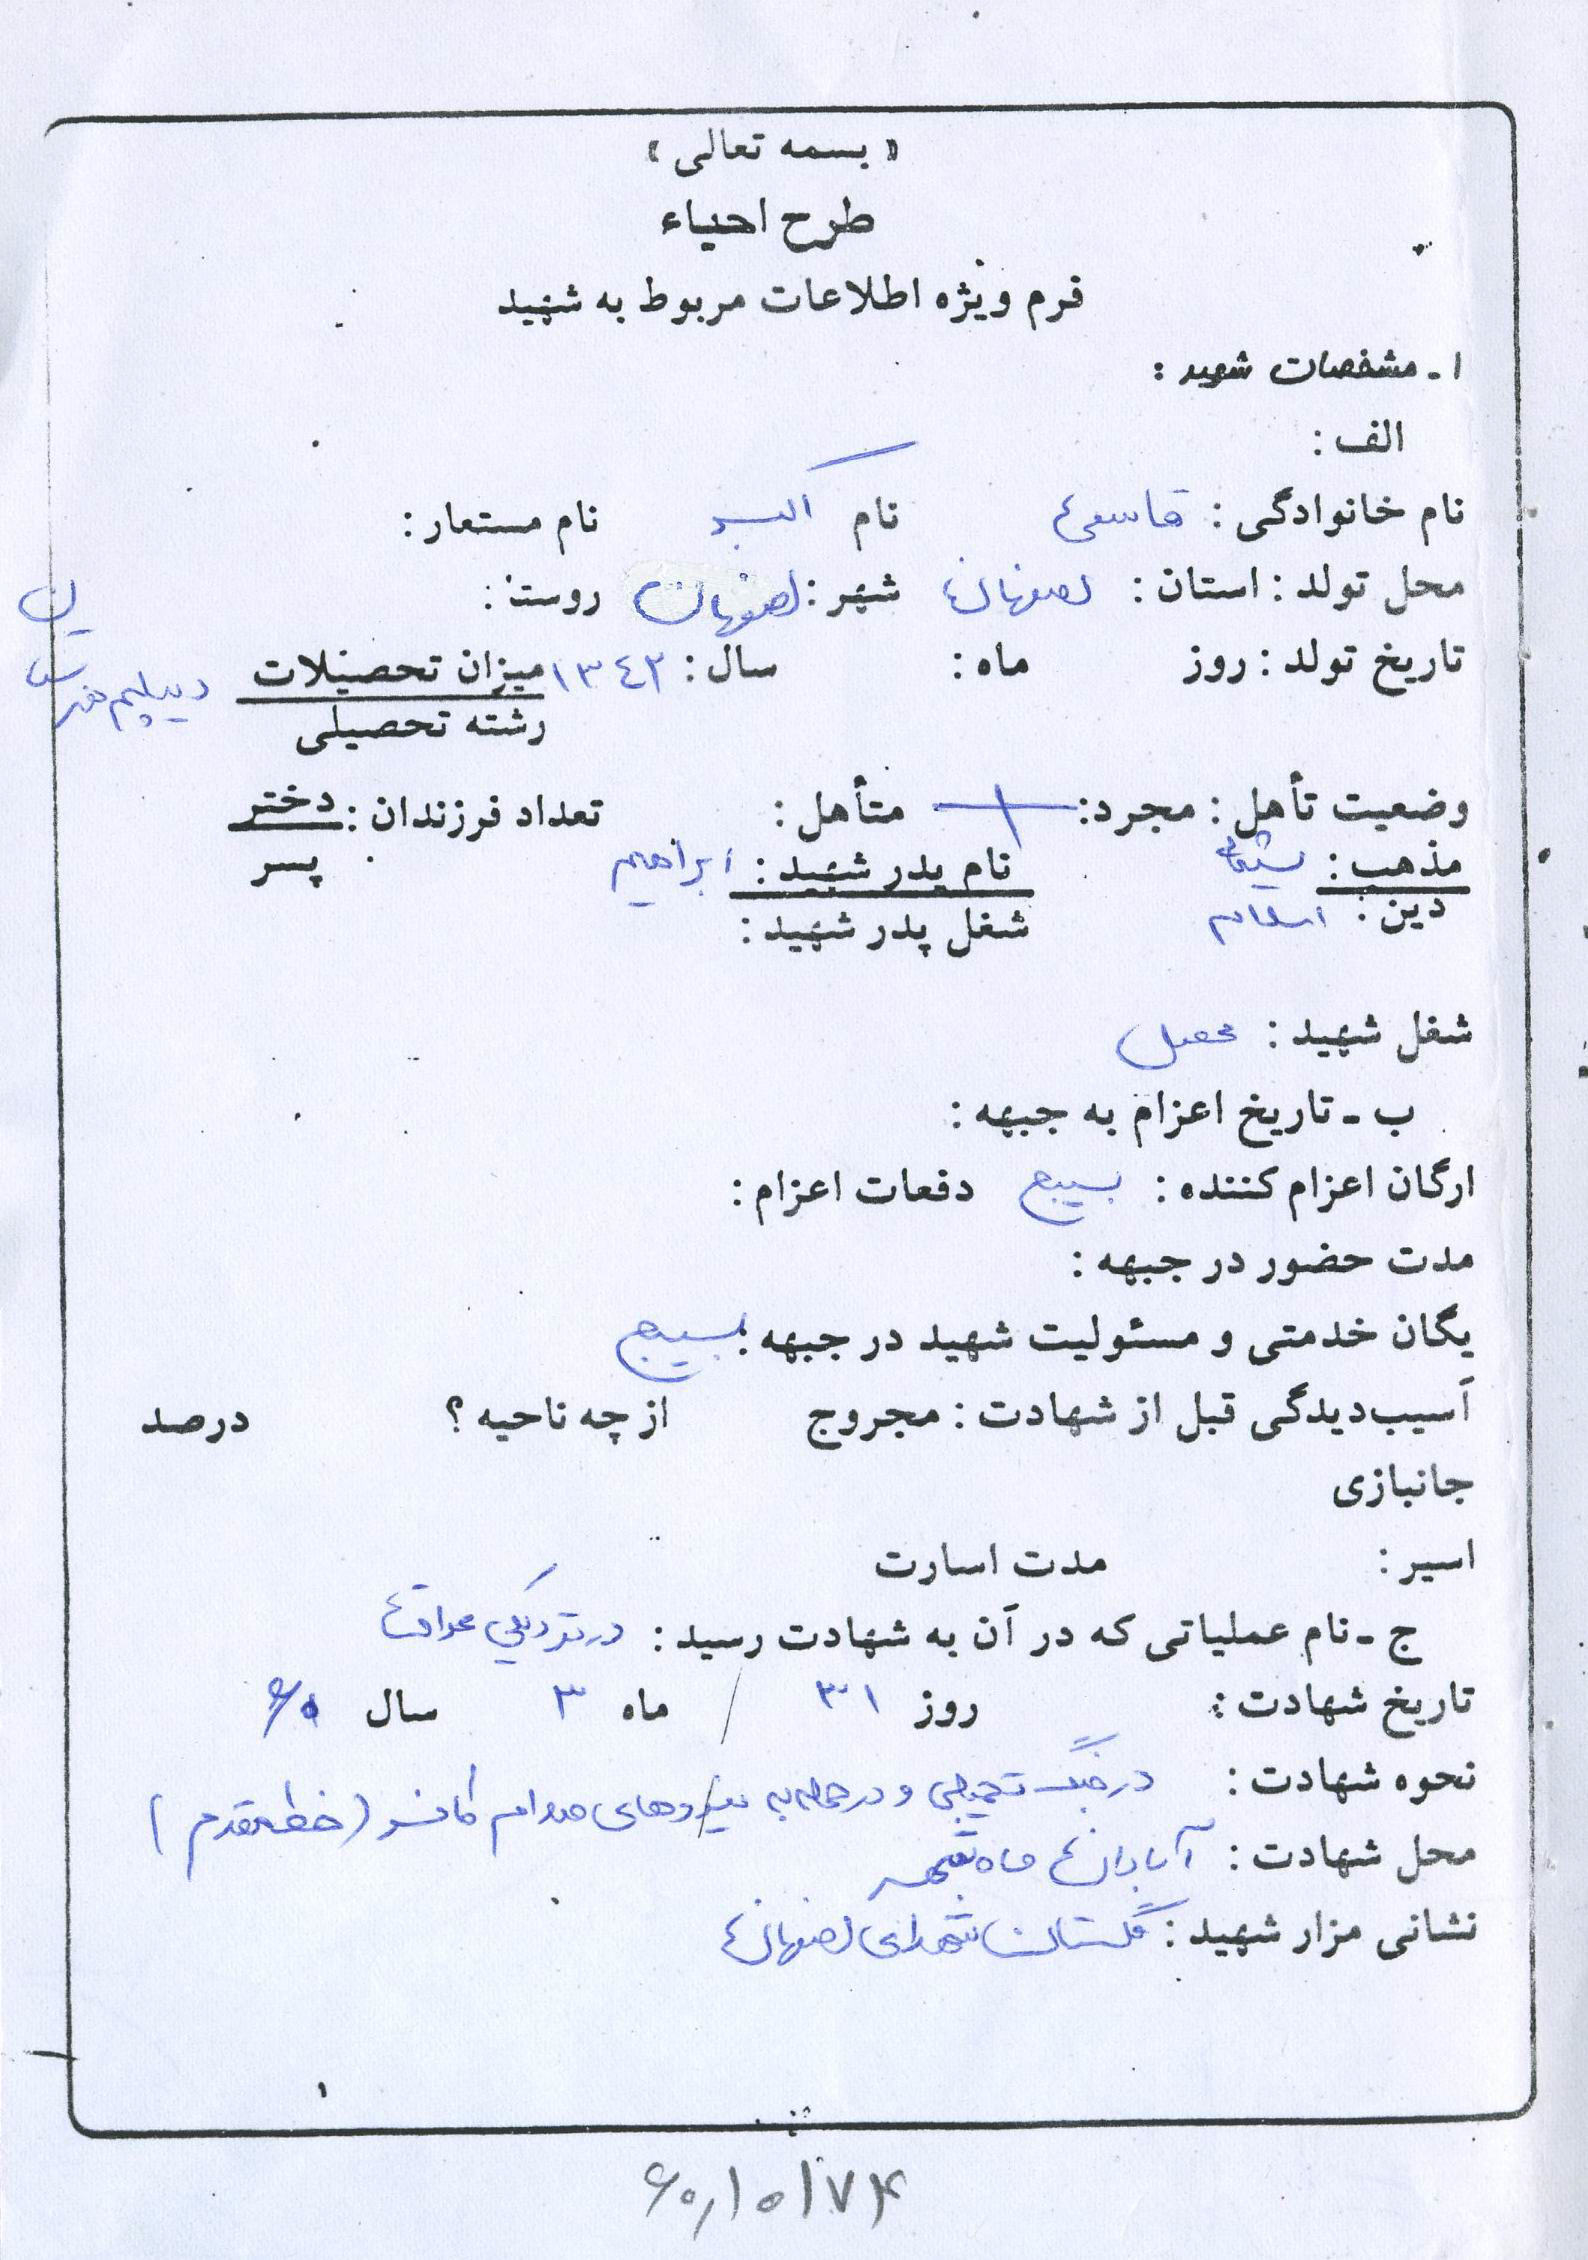 « بسمه تعالی »
طرح احیاء
فرم ویژه اطلاعات مربوط به شهید
۱ - مشخصات شهید :
الف :
نام خانوادگی : قاسمی نام اکبر نام مستعار :
محل تولد : استان : اصفهان شهر : اصفهان روستا :
تاریخ تولد : روز ماه : سال : ۱۳۴۲ میزان تحصیلات دیپلم
رشته تحصیلی
وضعیت تأهل : مجرد : متأهل : تعداد فرزندان : دختر
مذهب : شیعه نام پدر شهید : ابراهیم پسر
دین : اسلام شغل پدر شهید :
شغل شهید : محصل
ب - تاریخ اعزام به جبهه :
ارگان اعزام کننده : بسیج دفعات اعزام :
مدت حضور در جبهه :
یگان خدمتی و مسئولیت شهید در جبهه : بسیج
آسیب‌دیدگی قبل از شهادت : مجروح از چه ناحیه ؟ درصد
جانبازی
اسیر : مدت اسارت
ج - نام عملیاتی که در آن به شهادت رسید : در نزدیکی
تاریخ شهادت : روز ۳۱ / ماه ۳ سال ۶۰
نحوه شهادت : در جنگ تحمیلی و در حمله به نیروهای صدام کافر (خط مقدم)
محل شهادت : آبادان ماهشهر
نشانی مزار شهید : گلستان شهدای اصفهان
۱
۶۰,۱۰۱۷۴